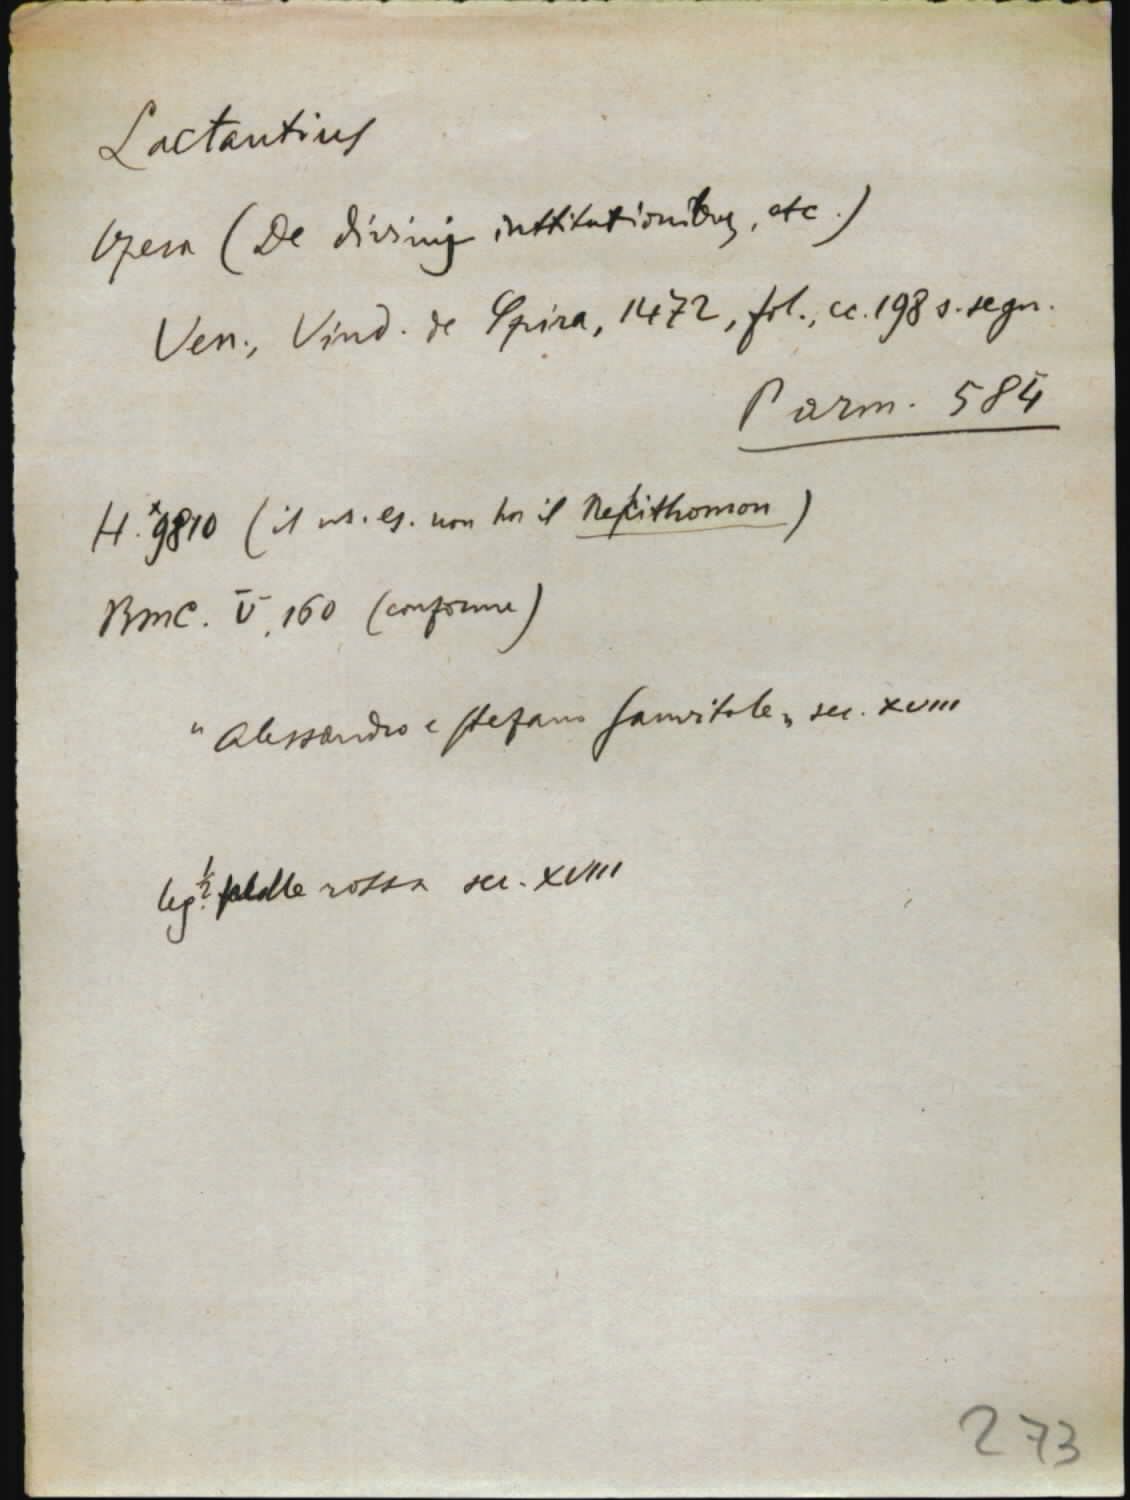 Lactantius
Opera (De divinis institutionibus, etc.)
Ven., Vind. de Spira, 1472, fol., cc. 198 s. segn.
Parm. 584
H.*9810 (il ns. es. non ha il Nephithomon)
BMC. V, 160 (conforme)
"Alessandro e Stefano Sanvitale" sec. XVIII
leg. ½ pelle rossa sec. XVIII
273